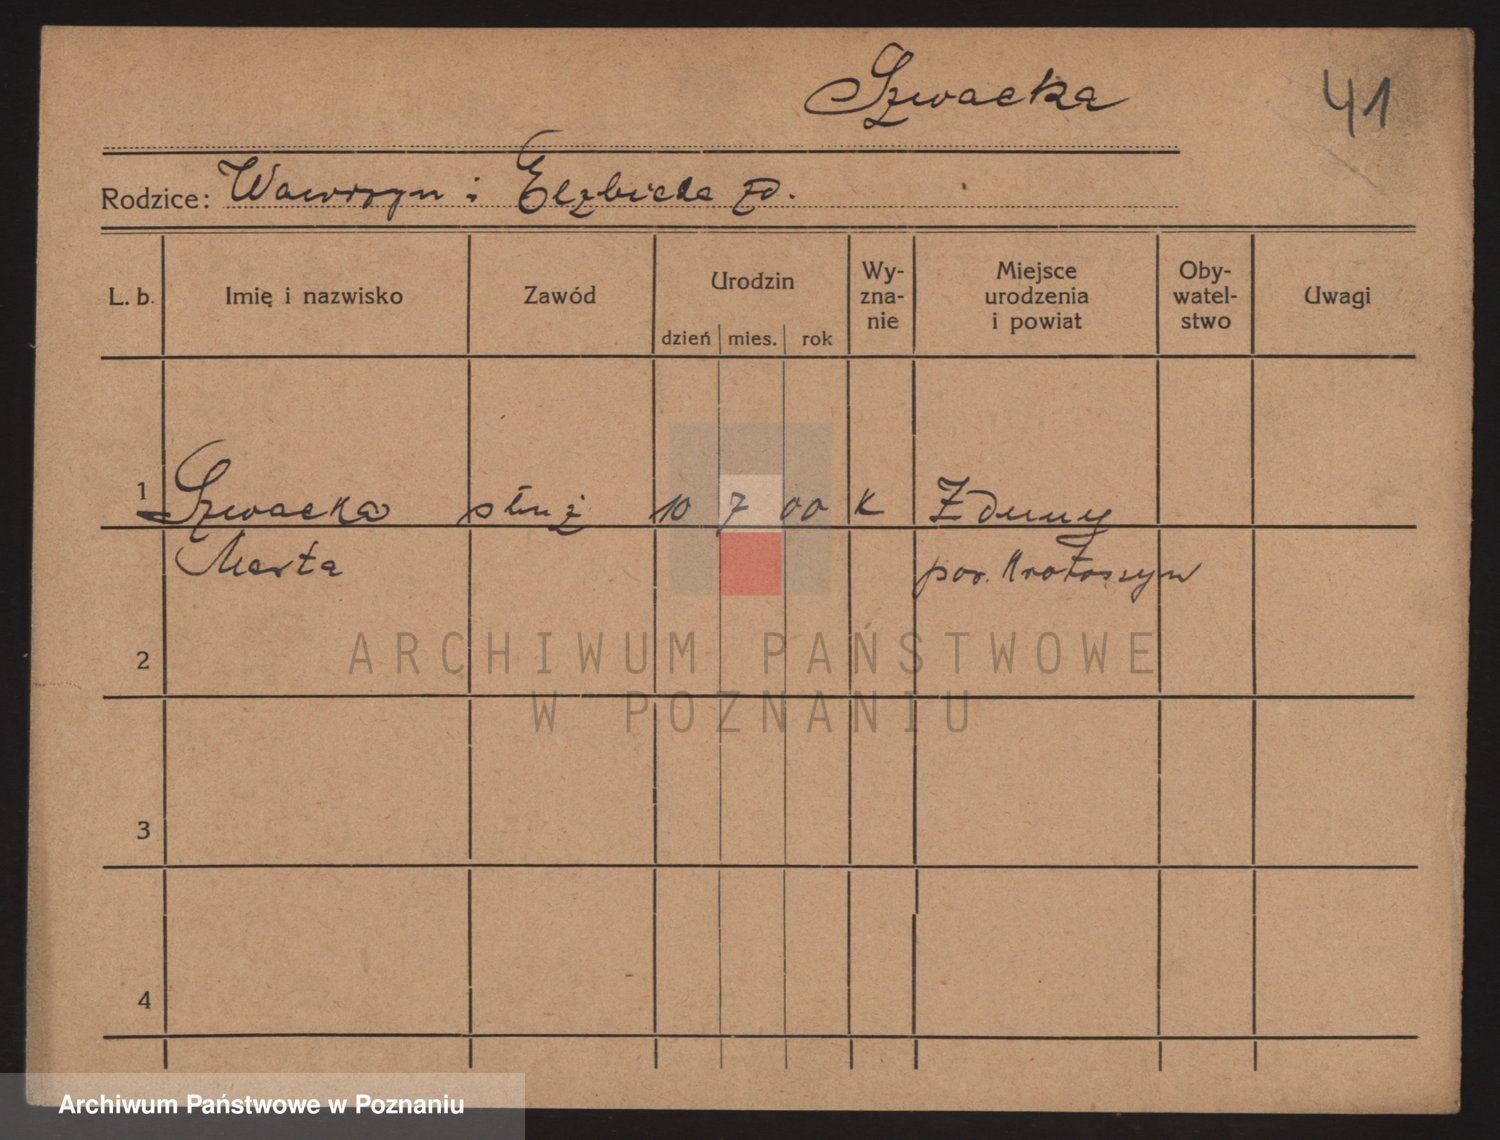 Szwacka
41
Rodzice: Wawrzyn i Elżbieta zd.
L. b. Imię i nazwisko Zawód Urodzin dzień mies. rok Wy-zna-nie Miejsce urodzenia i powiat Oby-watel-stwo Uwagi
1 Szwacka służ 10 7 00 K Zduny
Marta pow. Krotoszyn
2
3
4
ARCHIWUM PAŃSTWOWE
W POZNANIU
Archiwum Państwowe w Poznaniu